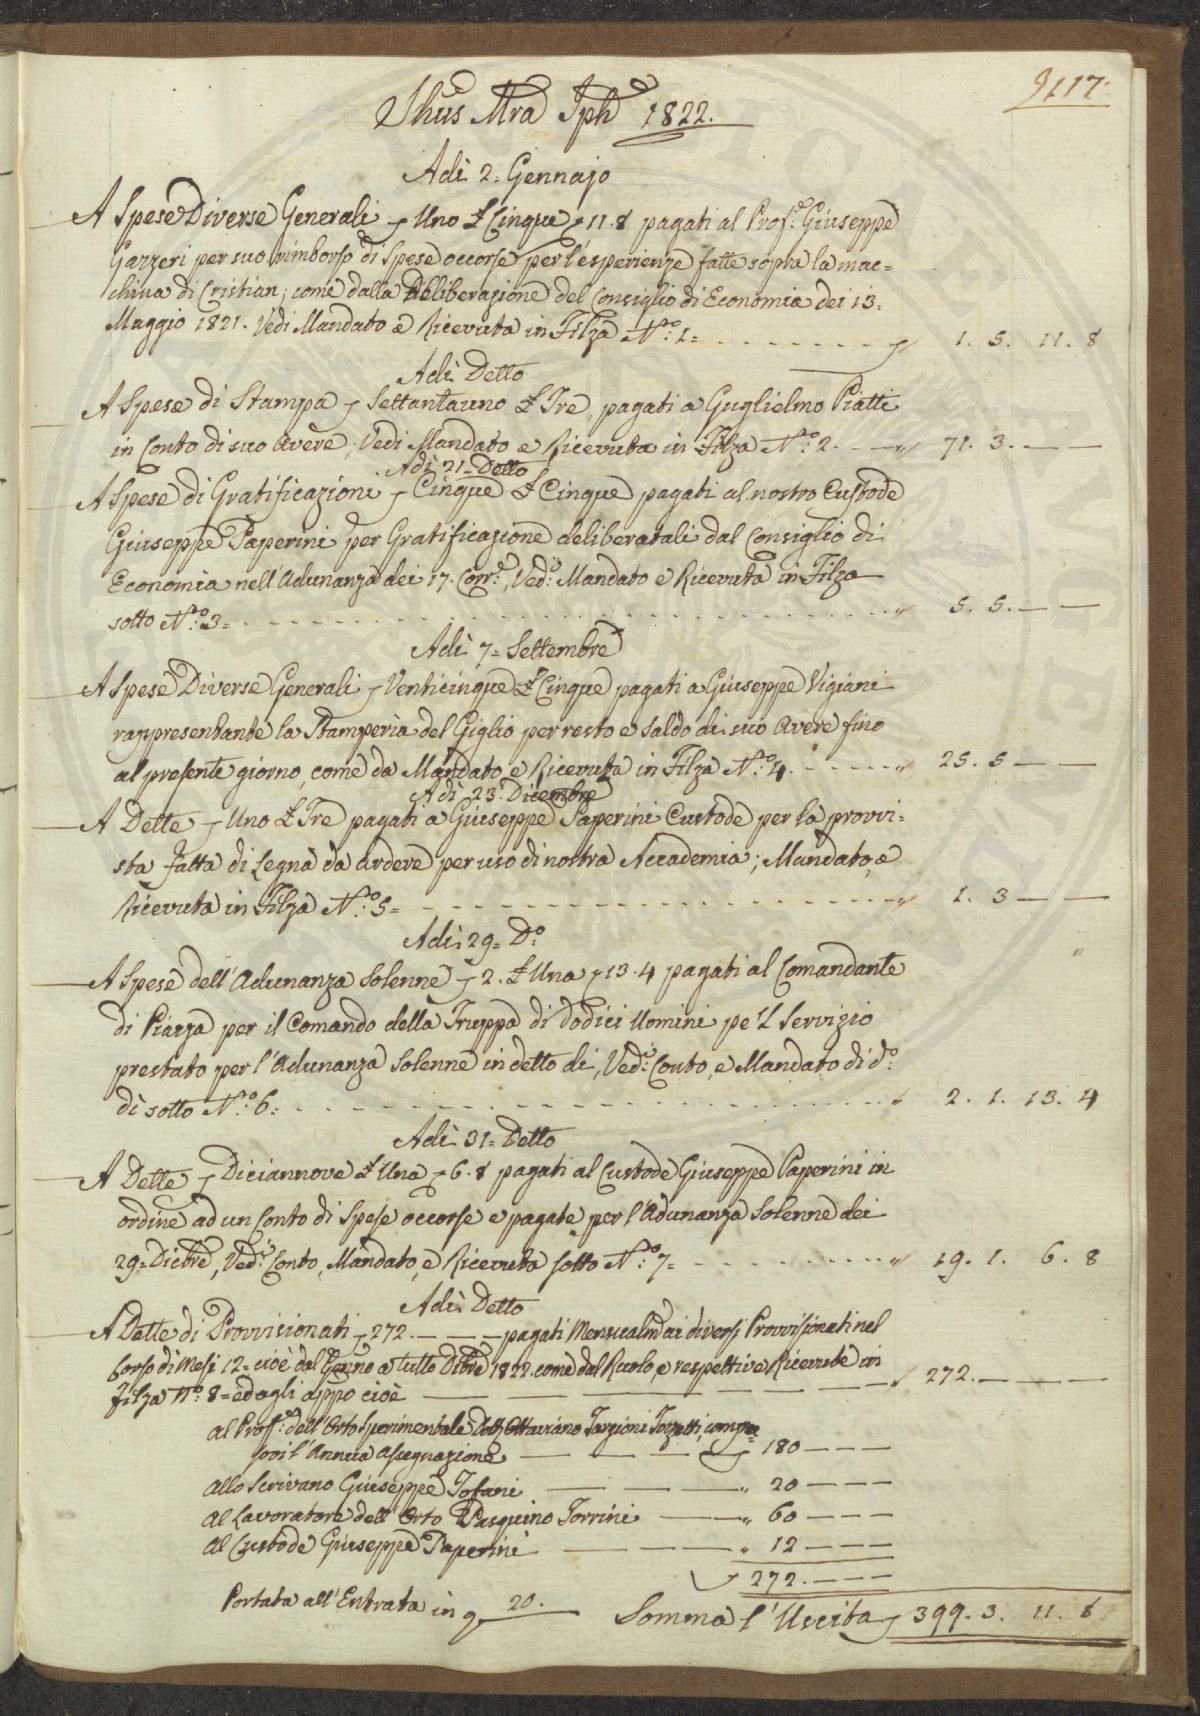 117.
Jhus Mra Jph 1822.
Adì 2. Gennajo
A Spese Diverse Generali, Uno £ Cinque, 11.8 pagati al Prof.e Giuseppe
Gazzeri per suo rimborso di spese occorse per l'esperienze fatte sopra la mac=
china di Cristian; come dalla Deliberazione del Consiglio di Economia dei 13.
Maggio 1821. Vedi Mandato e Ricevuta in Filza N.o 1= 1. 5. 11. 8
Adì Detto
A Spese di Stampa, Settantauno £ Tre, pagati a Guglielmo Piatti
in Conto di suo avere; Vedi Mandato e Ricevuta in Filza N.o 2. — " 71. 3. — —
Adì 21= Detto
A Spese di Gratificazioni, Cinque £ Cinque pagati al nostro Custode
Giuseppe Paperini per Gratificazione deliberatali dal Consiglio di
Economia nell'adunanza dei 17. Corr.e, Ved: Mandato e Ricevuta in Filza
sotto N.o 3= " 5. 5. — —
Adì 7= Settembre
A Spese Diverse Generali, Venticinque £ Cinque pagati a Giuseppe Vigiani
rappresentante la Stamperìa del Giglio per resto e saldo di suo avere fino
al presente giorno, come da Mandato, e Ricevuta in Filza N.o 4. " 25. 5 — —
Adì 23. Dicembre
A Dette, Uno £ Tre pagati a Giuseppe Paperini Custode per la provvi=
sta fatta di Legna da ardere per uso di nostra Accademia; Mandato, e
Ricevuta in Filza N.o 5= " 1. 3 — —
Adì 29= D.o
A Spese dell'Adunanza Solenne, 2. £ Una, 13.4 pagati al Comandante
di Piazza per il Comando della Truppa di dodici Uomini pe'l Servizio
prestato per l'Adunanza Solenne in detto dì, Ved: Conto, e Mandato di d.o
dì sotto N.o 6= 2. 1. 13. 4
Adì 31= Detto
A Dette, Diciannove £ Una, 6.8 pagati al Custode Giuseppe Paperini in
ordine ad un Conto di Spese occorse e pagate per l'Adunanza Solenne dei
29= Dicbre, Ved: Conto, Mandato, e Ricevuta sotto N.o 7= " 19. 1. 6. 8
Adì Detto
A Dette di Provvisionati, 272. — — — pagati Mensualm.e ai diversi Provvisionati nel
Corso di Mesi 12= cioè dal Genno a tutto Dcbre 1822. come dal Ruolo, e respettive Ricevute in
filza N.o 8= ed agli appo cioè — " 272. — — —
al Prof.e dell'Orto Sperimentale Dott. Ottaviano Targioni Tozzetti, compre
sovi l'Annua Assegnazione — 180 — — —
allo Scrivano Giuseppe Tofani — " 20 — — —
al Lavoratore dell'Orto Pasquino Torrini — " 60 — — —
al Custode Giuseppe Paperini — " 12 — — —
272. — — —
Portata all'Entrata in 20. Somma l'Uscita, 399. 3. 11. 8